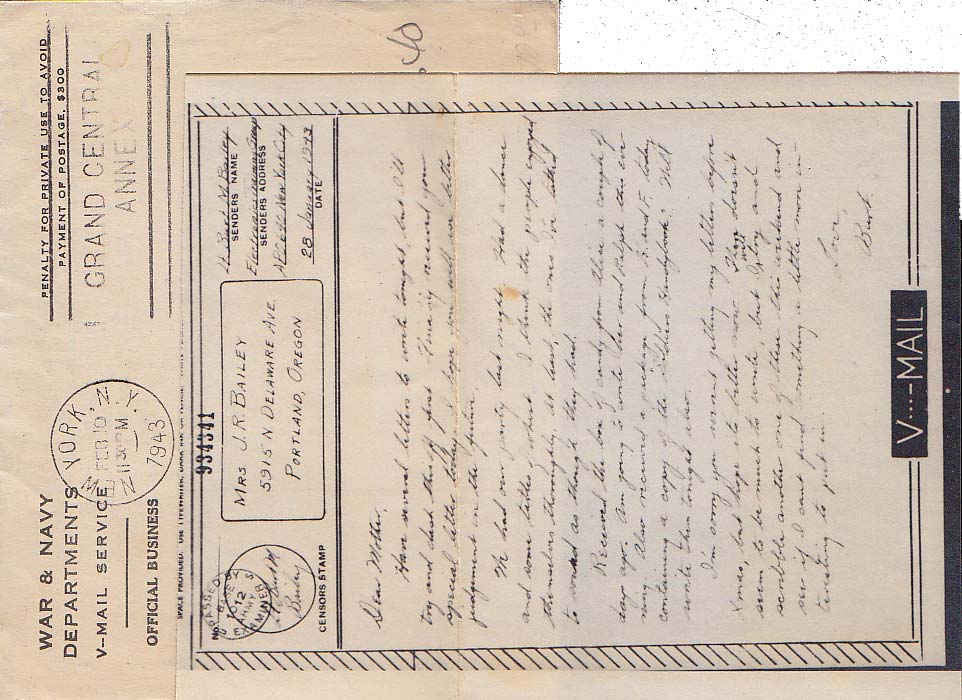 WAR & NAVY
DEPARTMENTS
V-MAIL SERVICE
OFFICIAL BUSINESS
YORK, N.Y.
FEB 10
11 30 PM
1943
PENALTY FOR PRIVATE USE TO AVOID
PAYMENT OF POSTAGE, $300
GRAND CENTRAL
ANNEX
934341
PASSED BY
BASE
1012
ARMY
EXAMINER
Bailey
CENSORS STAMP
MRS J. R. BAILEY
5915 N DELAWARE AVE.
PORTLAND, OREGON
Lt. Burt M. Bailey
SENDERS NAME
Electronics Training Group
SENDERS ADDRESS
New York City
28 January 1943
DATE
Dear Mother,
Have several letters to write tonight, but I'll
try and dash this off first. record you
special letter today, I hope you will use better
judgment in the future.
We had our party last night. Had a dance
and some I think the people enjoyed
themselves thoroughly at least, the ones I've talked
to as though they had.
Received the box of candy from there a couple of
days ago. Am going to write her and Ralph this eve-
ning. Also received a package from and F. today
containing a copy of the Soldiers Will
write them tonight also.
I'm sorry you weren't getting my letters before
Xmas, but hope its better now. There doesn't
seem to be much to write, but I'll try and
scribble another one of these this weekend and
see if I can't find something a little more in-
teresting to put in.
Love,
Burt.
V···—MAIL